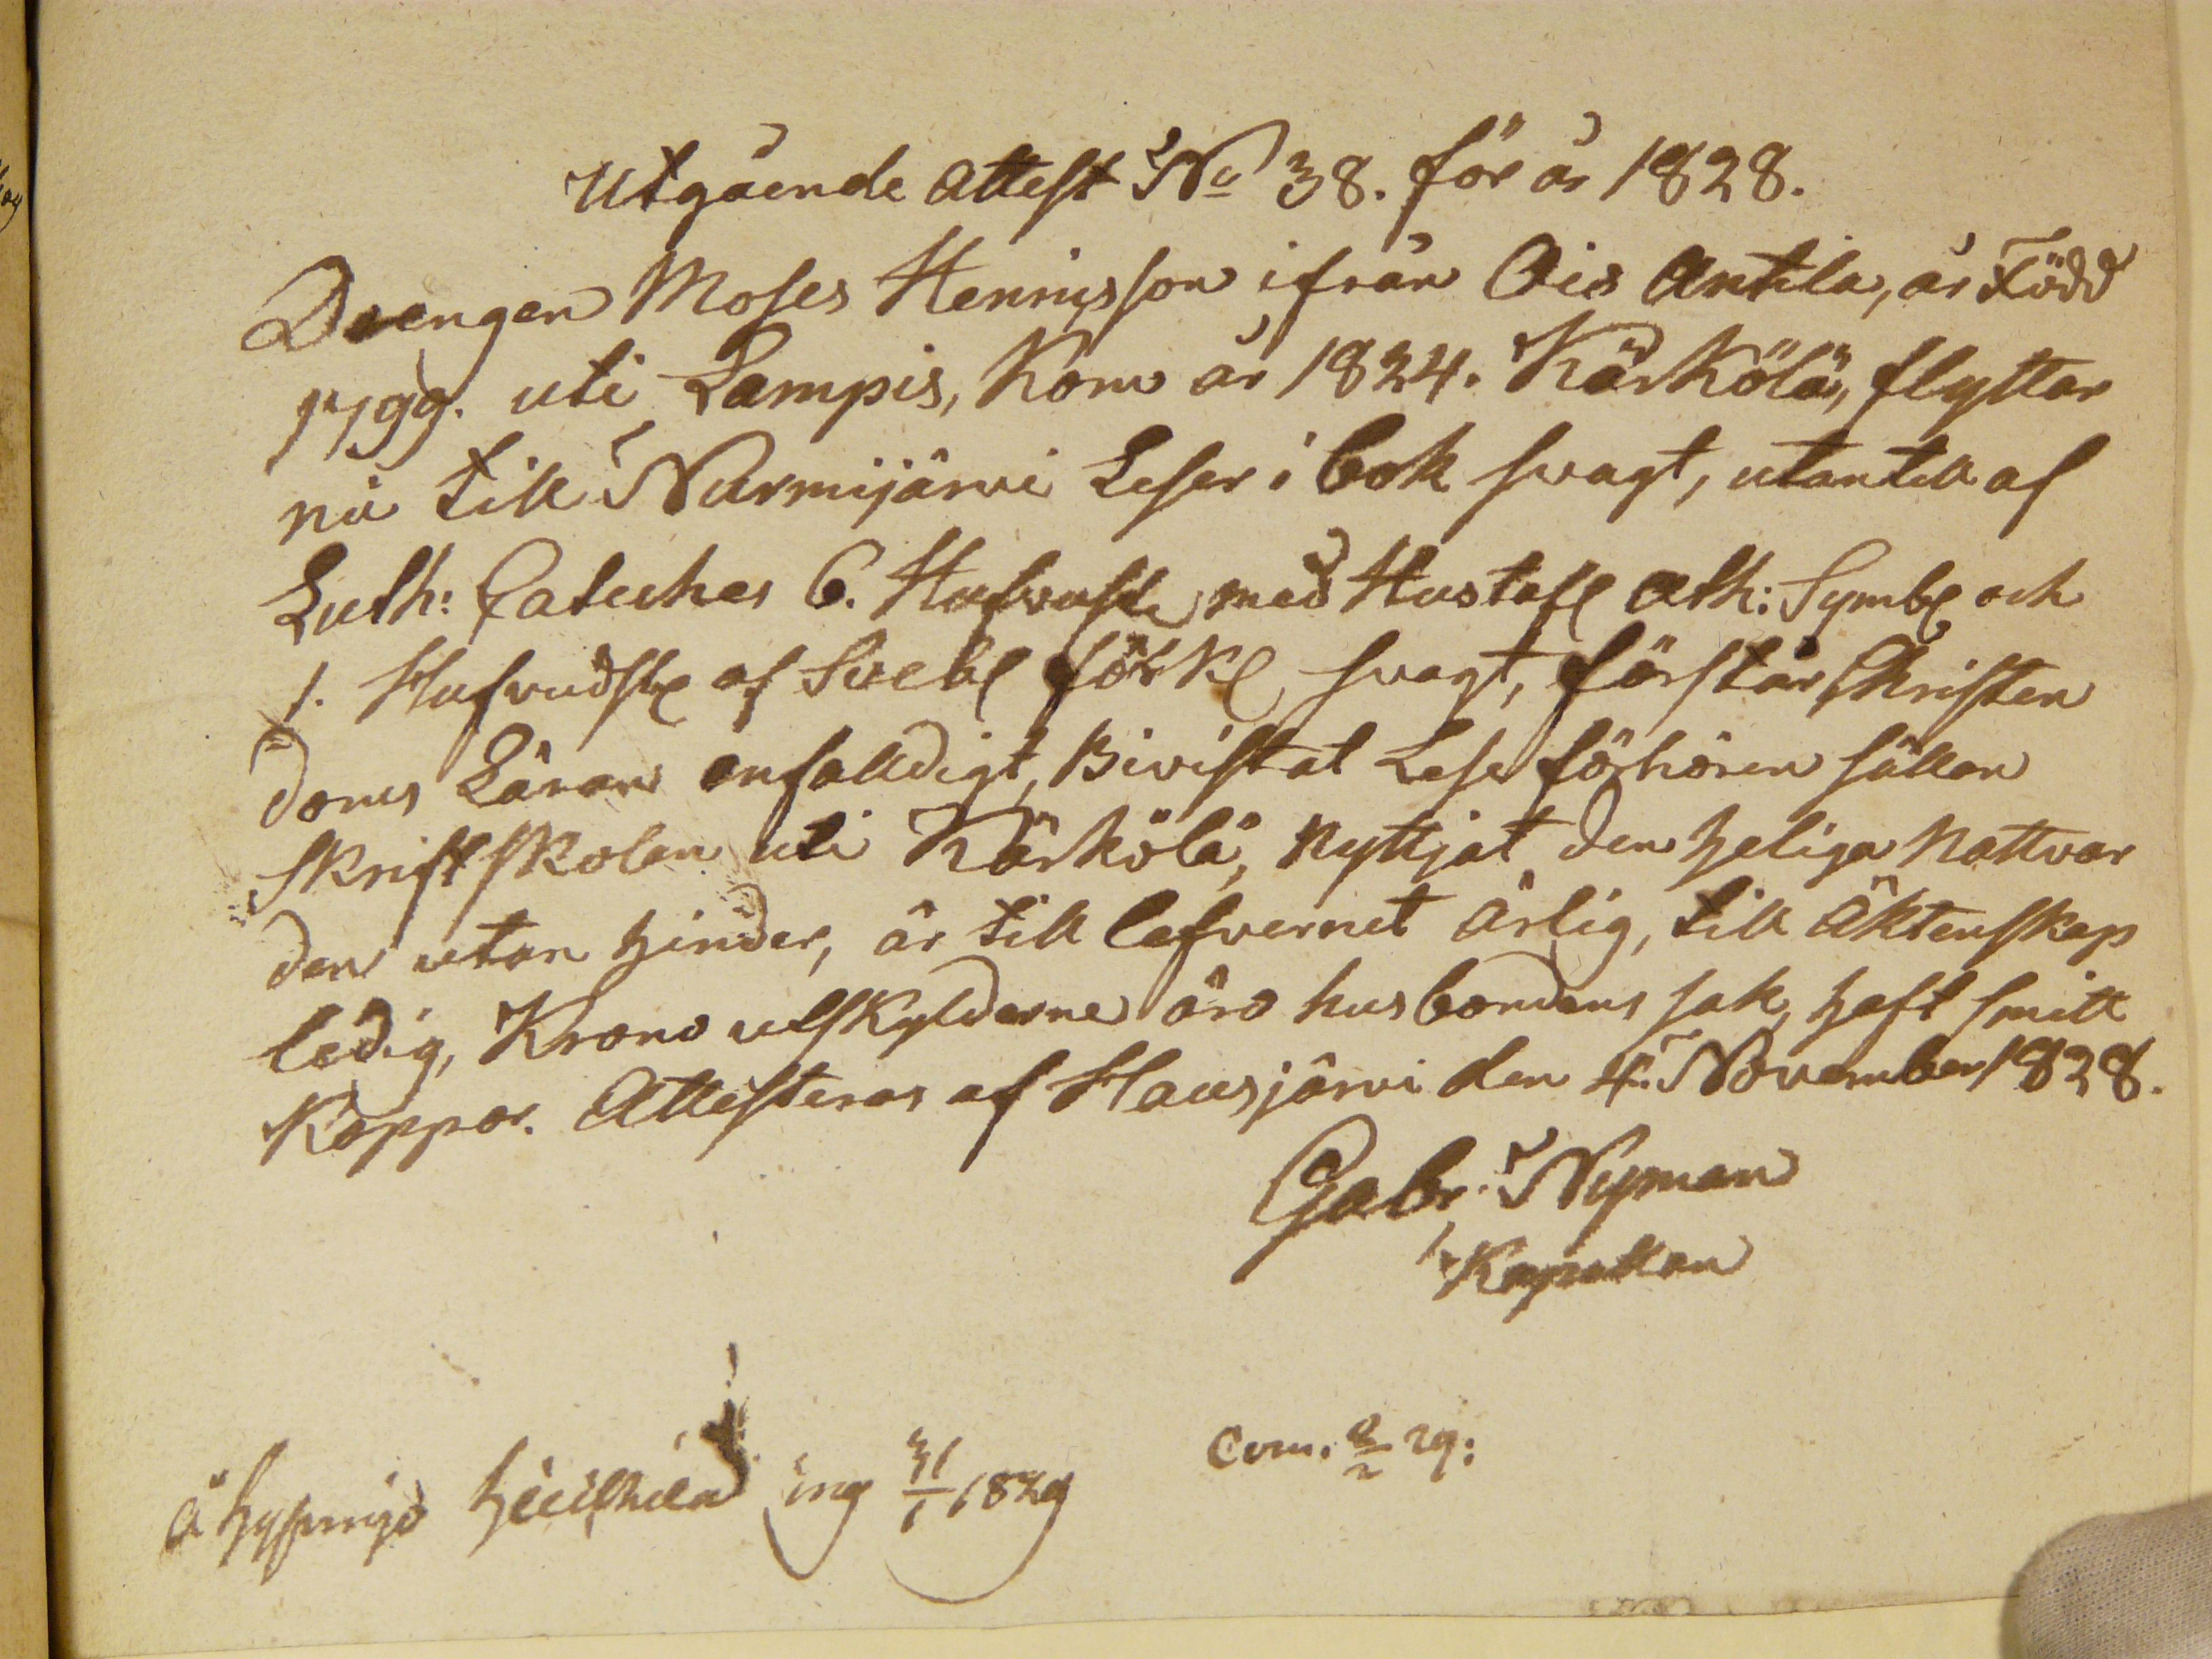 Utgående Attest No 38. för år 1828.
Drengen Moses Henricsson ifrån Ois Antila, är Född
1799. uti Lampis, Kom år 1824. Kärkölä, flyttar
nu till Nurmijärvi Leser i bok svagt, utantill af
Luth: Cateches 6. Hufvudst: med Hustafl Ath: Symb: och
1. Hufvudst: af Svebl förkl svagt, förstår Christen
doms Läran enfalldigt, Bivistat Lese förhören sällan
Skriftskolan uti Kärkölä, Nyttjat den heliga Nattvar
den utan hinder, är till lefvernet ärlig, till Äktenskap
ledig, Krono utskylderne äro husbondens sak, haft smitt
Koppor. Attesteras af Hausjärvi den 4. November 1828.
Gabr: Nyman
Kapellan
å ing 31/1 1829
Com. 29: